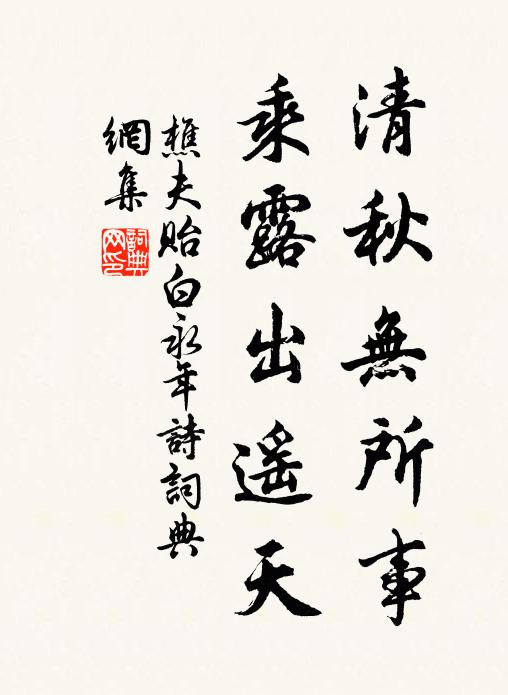 清秋無所事
乘露出遥天
樵夫貽白永年詩詞典
網集
詞典
网印